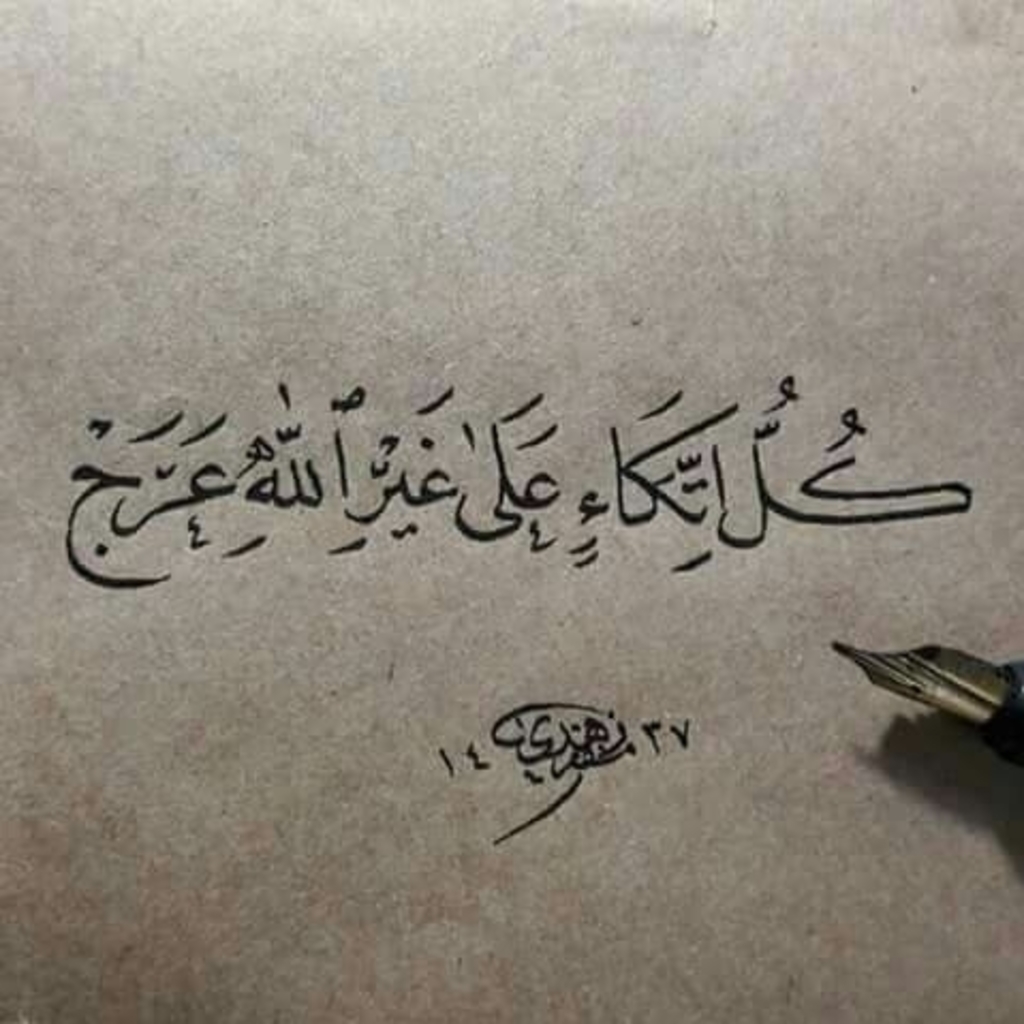 كُلُّ اتِّكَاءٍ عَلَىٰ غَيْرِ ٱللّٰهِ عَرَجْ
١٤ ٣٧